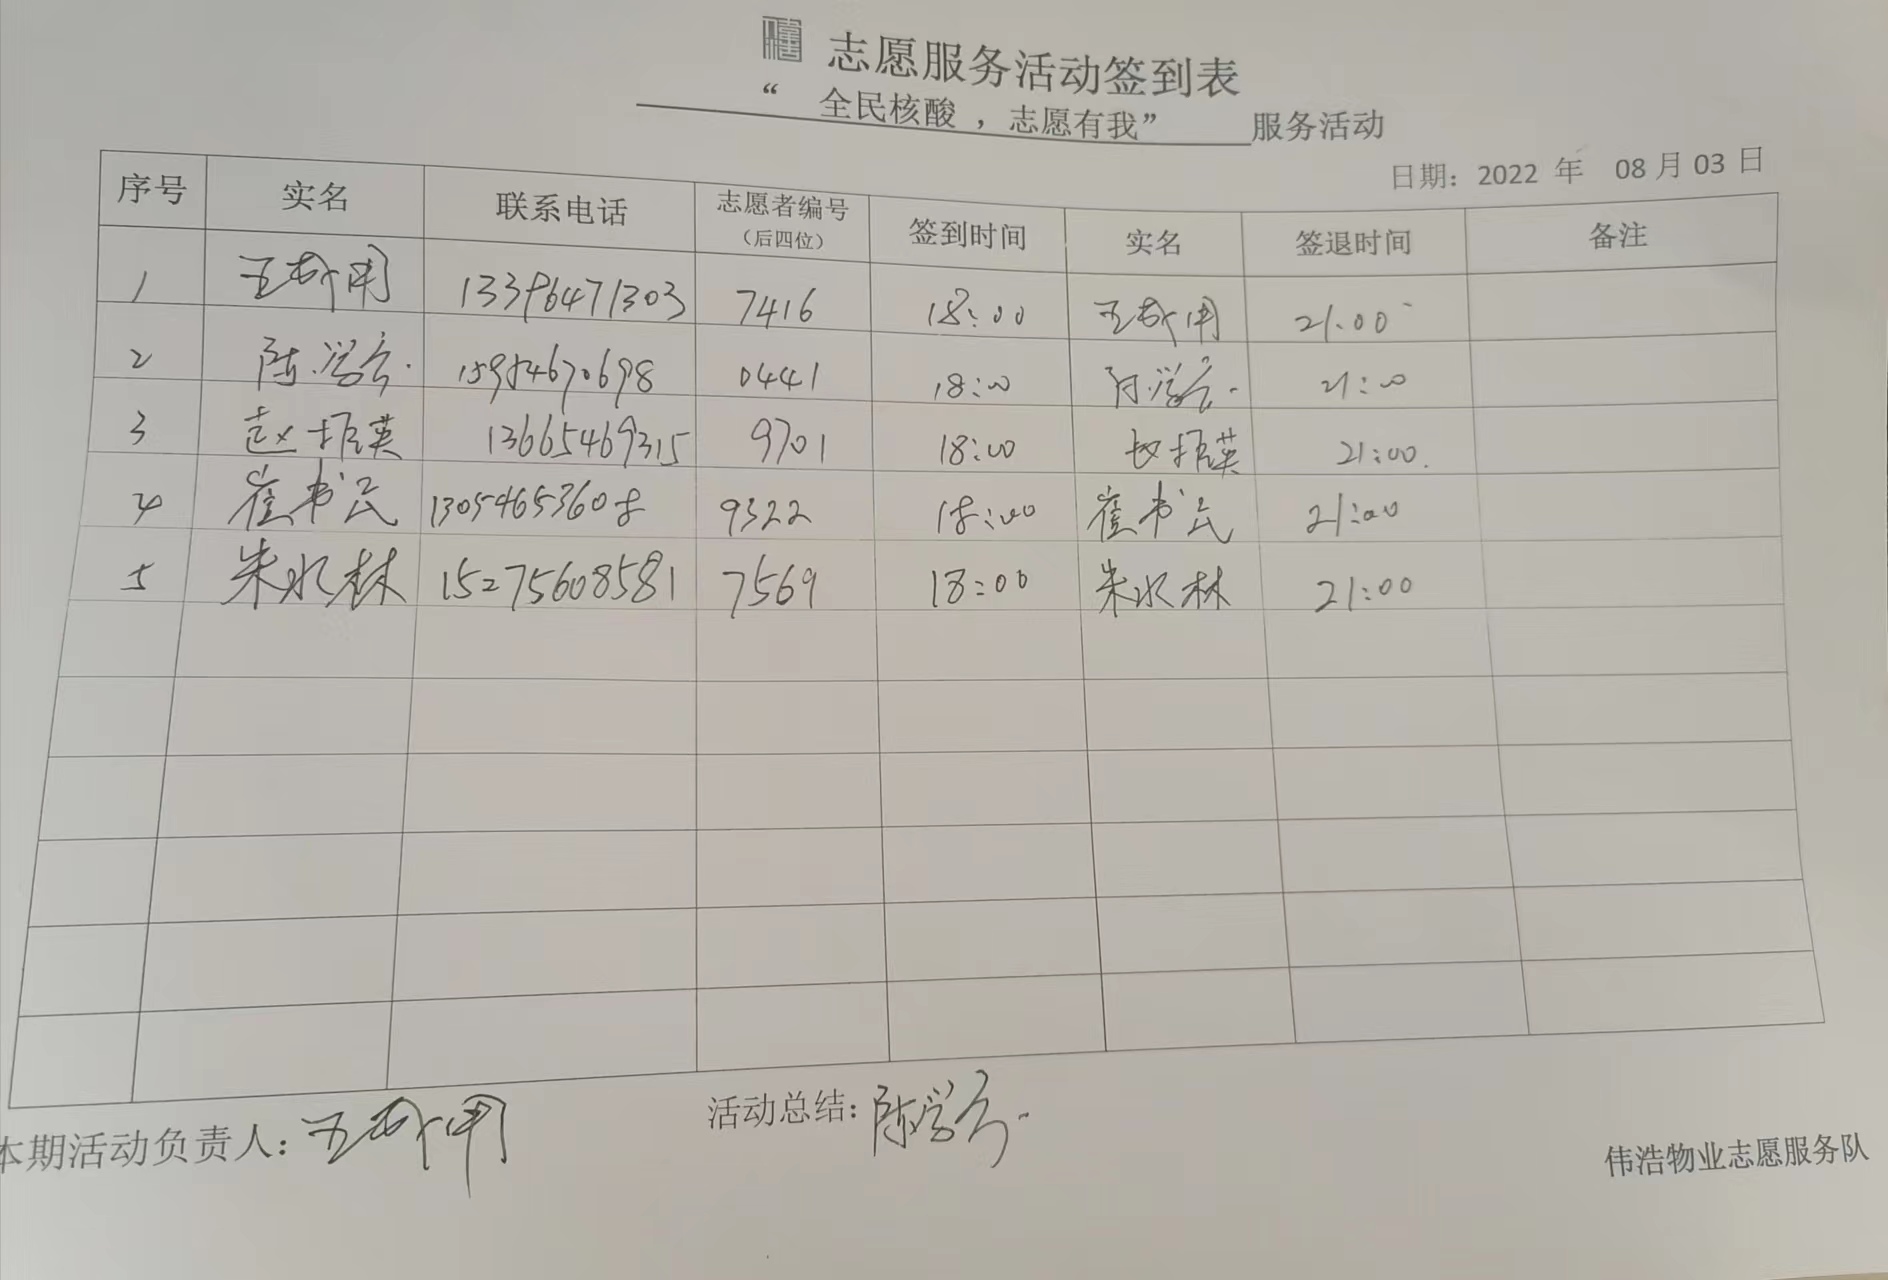 志愿服务活动签到表
“ 全民核酸 ，志愿有我” 服务活动
日期：2022 年 08 月 03 日
序号 实名 联系电话 志愿者编号（后四位） 签到时间 实名 签退时间 备注
1 13396471303 7416 18:00 21:00
2 陈学云 15954670698 0441 18:00 陈学云 21:00
3 赵振英 13665469315 9701 18:00 赵振英 21:00
4 崔书云 13054653608 9322 18:00 崔书云 21:00
5 朱水林 15275608581 7569 18:00 朱水林 21:00
本期活动负责人： 活动总结：陈学云
伟浩物业志愿服务队